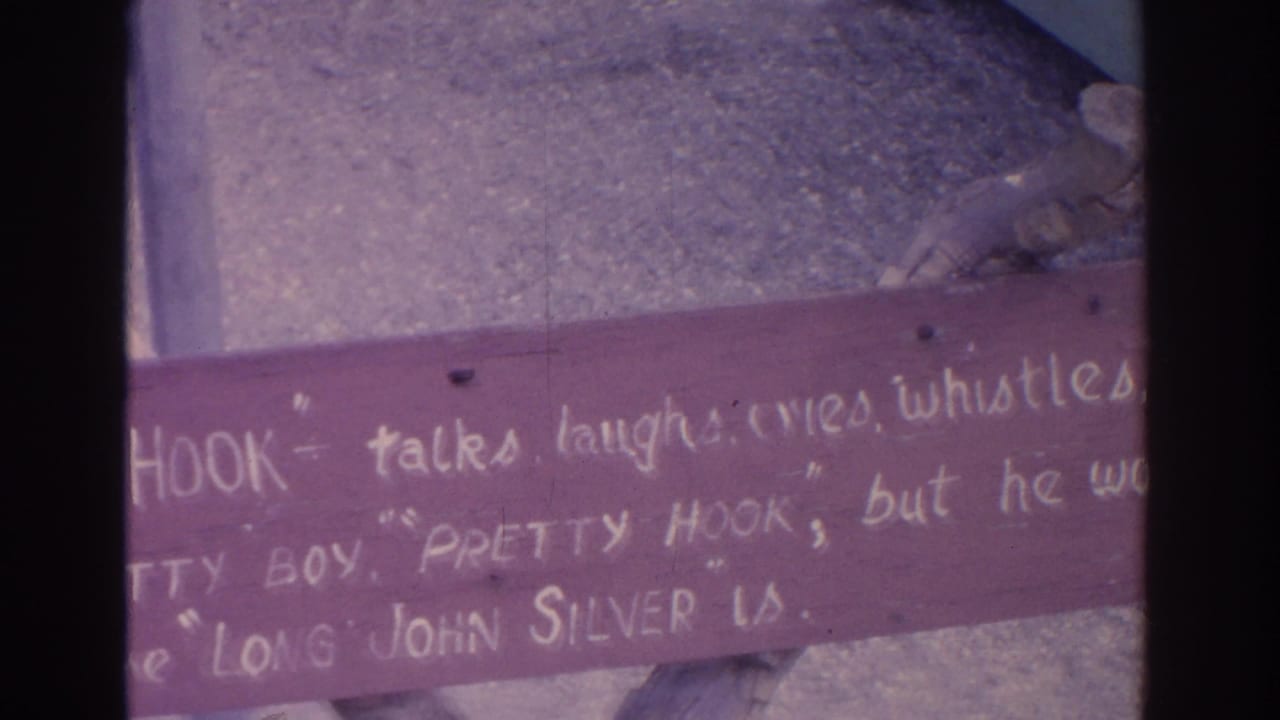 HOOK" - talks, laughs, cries, whistles,
TTY BOY, "PRETTY HOOK", but he wo
e "LONG JOHN SILVER" is.